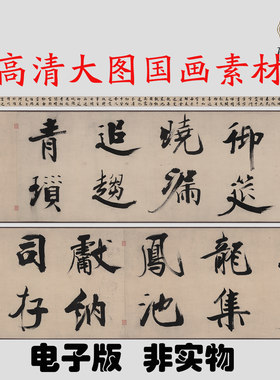 高清大图国画素材
御筵
曉漏
追趨
青瑣
龍集
鳳池
獻納
司存
电子版 非实物